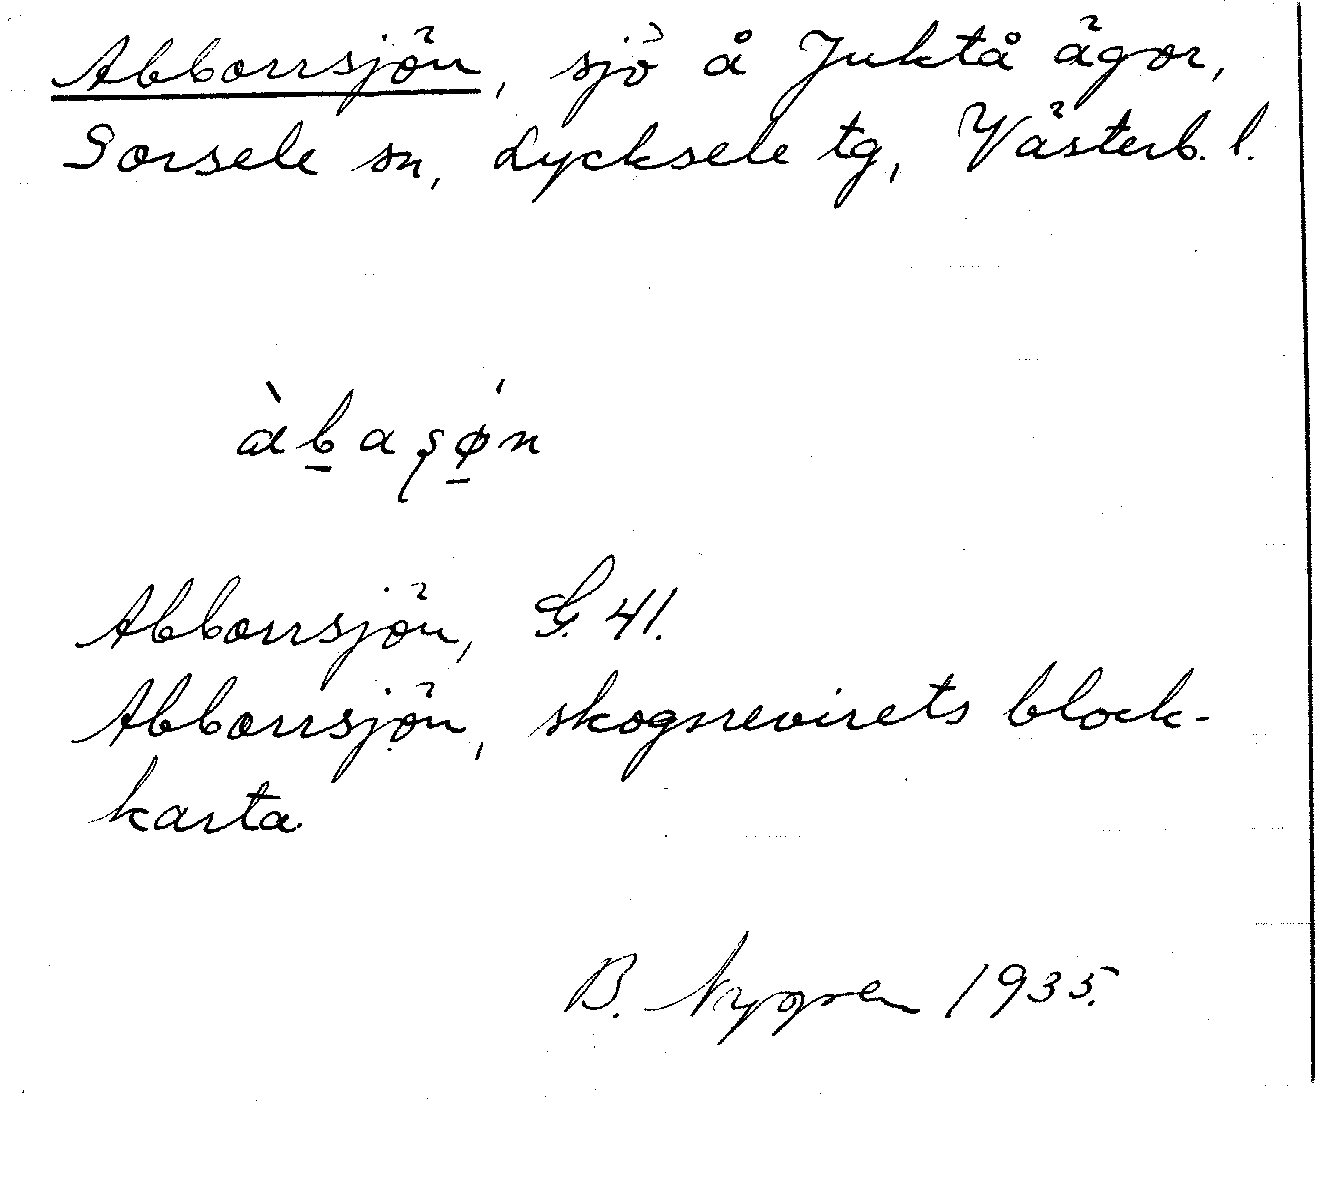 Abborrsjön, sjö å Juktå ägor,
Sorsele sn, Lycksele tg, Västerb. l.
àb̲aʂǿ̲n
Abborrsjön, G. 41.
Abborrsjön, skogsrevirets block-
karta
B. Nygren 1935.